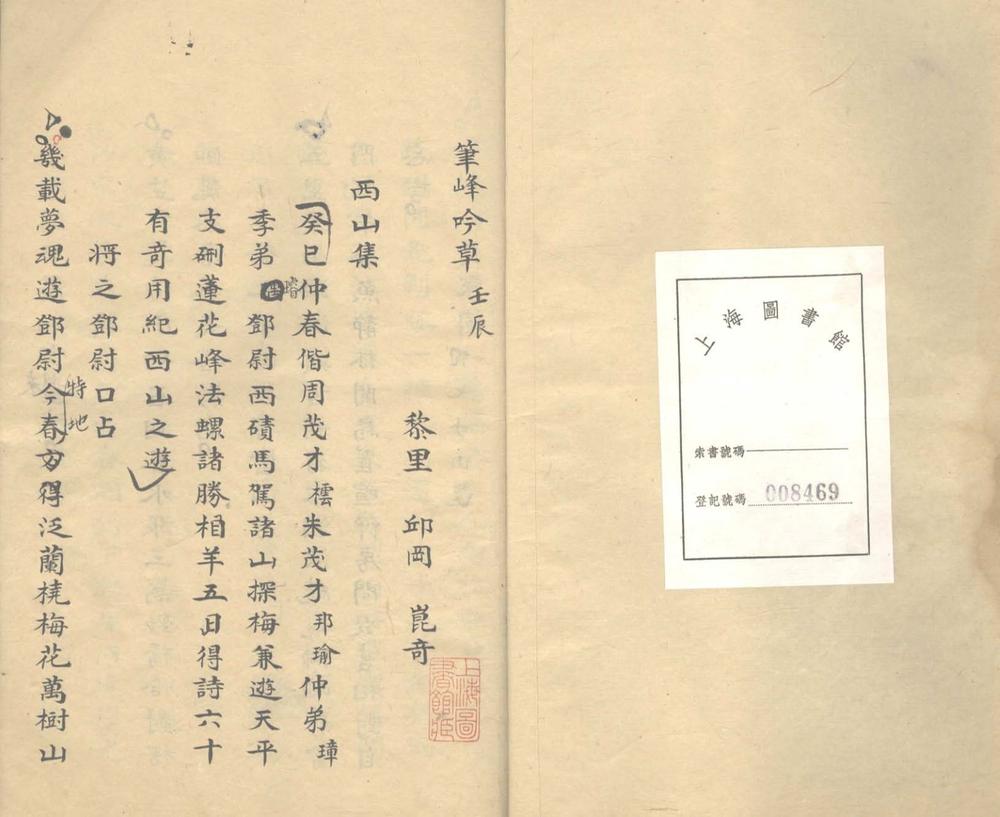 上海圖書館
索書號碼
登記號碼 008469
筆峰吟草 壬辰
黎里 邱岡 崑奇
上海圖書館藏
西山集
癸巳仲春偕周茂才橒朱茂才邦瑜仲弟璋
季弟璿鄧尉西磧馬駕諸山探梅兼遊天平
支硎蓮花峰法螺諸勝相羊五日得詩六十
有奇用紀西山之遊
將之鄧尉口占
幾載夢魂遊鄧尉今春方得泛蘭橈梅花萬樹山
特地